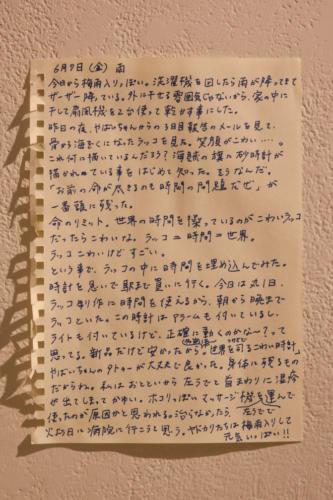 6月9日(金) 雨
今日から梅雨入りっぽい。洗濯機を回したら雨が降ってきて
ザーザー降っている。外に干せる雰囲気じゃないから、家の中に
干して扇風機を2台使って乾かす事にした。
昨日の夜、やばいちゃんからの3日報告のメールを見て、
骨から海ぞくになったラッコを見た。笑顔がこわい…。
これ何に描いているんだろう? 海賊の旗の砂時計が
描かれている事をはじめて知った。そうなんだ。
「お前の命が尽きるのも時間の問題だぜ」が
一番頭に残った。
命のリミット。世界の時間を操っているのがこわいラッコ
だったらこわいな。ラッコ=時間=世界。
ラッコこわいけどすごい。
という事で、ラッコの中に時間を埋め込んでみた。
時計を急いで駅まで買いに行く。今日は丸1日、
ラッコ作りに時間を使えるから、朝から晩まで
ラッコといた。この時計はアラームも付いているし、
ライトも付いているけど、正確に動くのかな~?って
思ってる。新品だけど安かったから。"世界を司るこわい時計"
やばいちゃんのタトゥーが大丈夫で良かった。身体に残るもの
だからね。私はおとといから左うでと首まわりに湿疹
が出てしまってかゆい。ホコリっぽいマッサージ機を運んで
使ったのが原因かと思われる。治らなかったら 左うでで
火よう日に病院に行こうと思う。ヤドカリたちは梅雨入りして
元気いっぱい!!